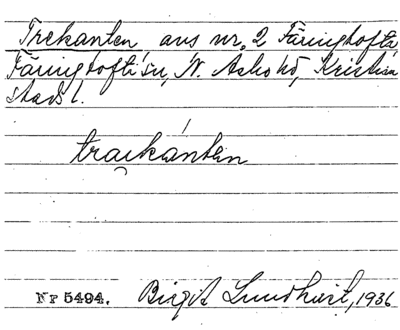 Trekanten, avs nr. 2 Färingtofta,
Färingtofta sn, N. Åsbo hd, Kristian
stads l.
traikánten
Nr 5494. Birgit Lundkvist, 1936